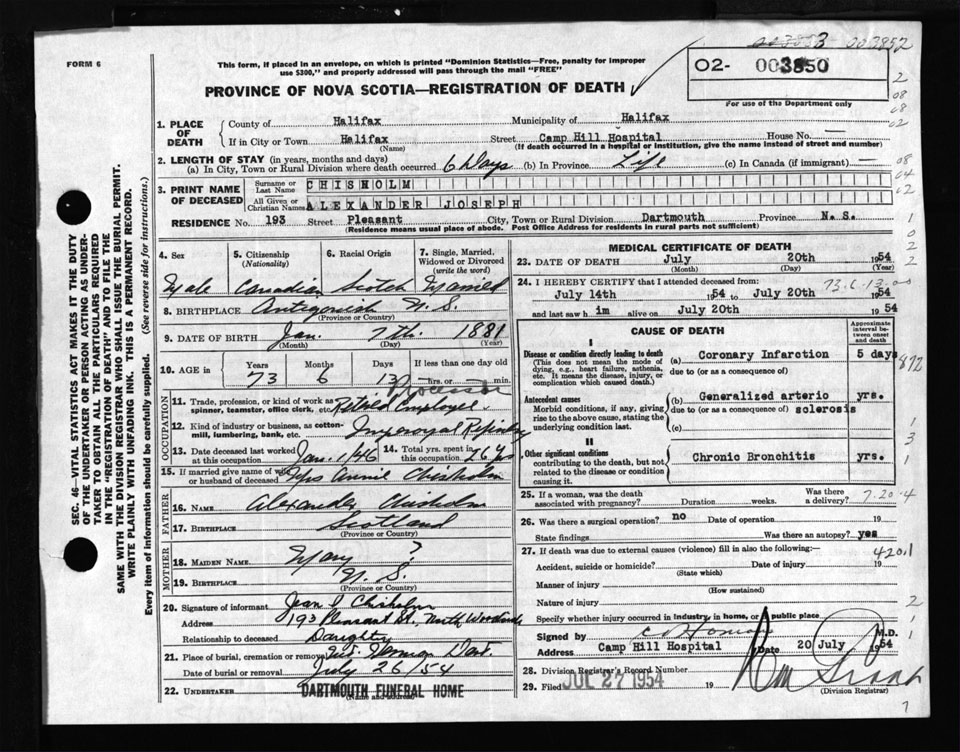 003853 003852
FORM 6
This form, if placed in an envelope, on which is printed "Dominion Statistics—Free, penalty for improper
use $300," and properly addressed will pass through the mail "FREE"
02- 003850
For use of the Department only
PROVINCE OF NOVA SCOTIA—REGISTRATION OF DEATH
1. PLACE OF DEATH
County of Halifax Municipality of Halifax
If in City or Town Halifax Street Camp Hill Hospital House No. —
(Name) (If death occurred in a hospital or institution, give the name instead of street and number)
2. LENGTH OF STAY (in years, months and days)
(a) In City, Town or Rural Division where death occurred 6 Days (b) In Province Life (c) In Canada (if immigrant) —
3. PRINT NAME OF DECEASED
Surname or Last Name CHISHOLM
All Given or Christian Names ALEXANDER JOSEPH
RESIDENCE No. 193 Street Pleasant City, Town or Rural Division Dartmouth Province N. S.
(Residence means usual place of abode. Post Office Address for residents in rural parts not sufficient)
4. Sex
5. Citizenship (Nationality)
6. Racial Origin
7. Single, Married, Widowed or Divorced (write the word)
Male Canadian Scotch Married
8. BIRTHPLACE Antigonish N. S.
(Province or Country)
9. DATE OF BIRTH Jan. 7th. 1881
(Month) (Day) (Year)
10. AGE in Years Months Days If less than one day old
73 6 13 hrs. or min.
OCCUPATION
11. Trade, profession, or kind of work as spinner, teamster, office clerk, etc. Retired Employee.
12. Kind of industry or business, as cotton-mill, lumbering, bank, etc. Imperoyal Refinery
13. Date deceased last worked at this occupation Jan. 1/46
14. Total yrs. spent in this occupation 26 yrs
15. If married give name of wife or husband of deceased Mrs Annie Chisholm
FATHER
16. Name Alexander Chisholm
17. Birthplace Scotland
(Province or Country)
MOTHER
18. Maiden Name Mary ?
19. Birthplace N. S.
(Province or Country)
20. Signature of informant Jean Chisholm
Address 193 Pleasant St., North Woodside
Relationship to deceased Daughter
21. Place of burial, cremation or removal Mt. Hermon Dart.
Date of burial or removal July 26/54
22. Undertaker DARTMOUTH FUNERAL HOME
(Name and address)
MEDICAL CERTIFICATE OF DEATH
23. DATE OF DEATH July 20th 1954
(Month) (Day) (Year)
24. I HEREBY CERTIFY that I attended deceased from:
73.6.13.00
July 14th 1954 to July 20th 1954
and last saw him alive on July 20th 1954
CAUSE OF DEATH
Approximate interval between onset and death
I
Disease or condition directly leading to death (a) Coronary Infarction 5 days
(This does not mean the mode of dying, e.g., heart failure, asthenia, etc. It means the disease, injury, or complication which caused death.)
due to (or as a consequence of)
Antecedent causes (b) Generalized arterio yrs.
Morbid conditions, if any, giving rise to the above cause, stating the underlying condition last.
due to (or as a consequence of) sclerosis
(c)
II
Other significant conditions Chronic Bronchitis yrs.
contributing to the death, but not related to the disease or condition causing it.
25. If a woman, was the death associated with pregnancy? Duration weeks. Was there a delivery? 7.20.4
26. Was there a surgical operation? no Date of operation 19
State findings Was there an autopsy? yes
27. If death was due to external causes (violence) fill in also the following:— 420.1
Accident, suicide or homicide? Date of injury 19
(State which)
Manner of injury
(How sustained)
Nature of injury
Specify whether injury occurred in industry, in home, or in public place
Signed by M.D.
Address Camp Hill Hospital Date 20 July 1954
28. Division Registrar's Record Number
29. Filed JUL 27 1954 19
(Division Registrar)
SEC. 46—VITAL STATISTICS ACT MAKES IT THE DUTY
OF THE UNDERTAKER OR PERSON ACTING AS UNDER-
TAKER TO OBTAIN ALL THE PARTICULARS REQUIRED
IN THE "REGISTRATION OF DEATH" AND TO FILE THE
SAME WITH THE DIVISION REGISTRAR WHO SHALL ISSUE THE BURIAL PERMIT.
WRITE PLAINLY WITH UNFADING INK. THIS IS A PERMANENT RECORD.
Every item of information should be carefully supplied. (See reverse side for instructions.)